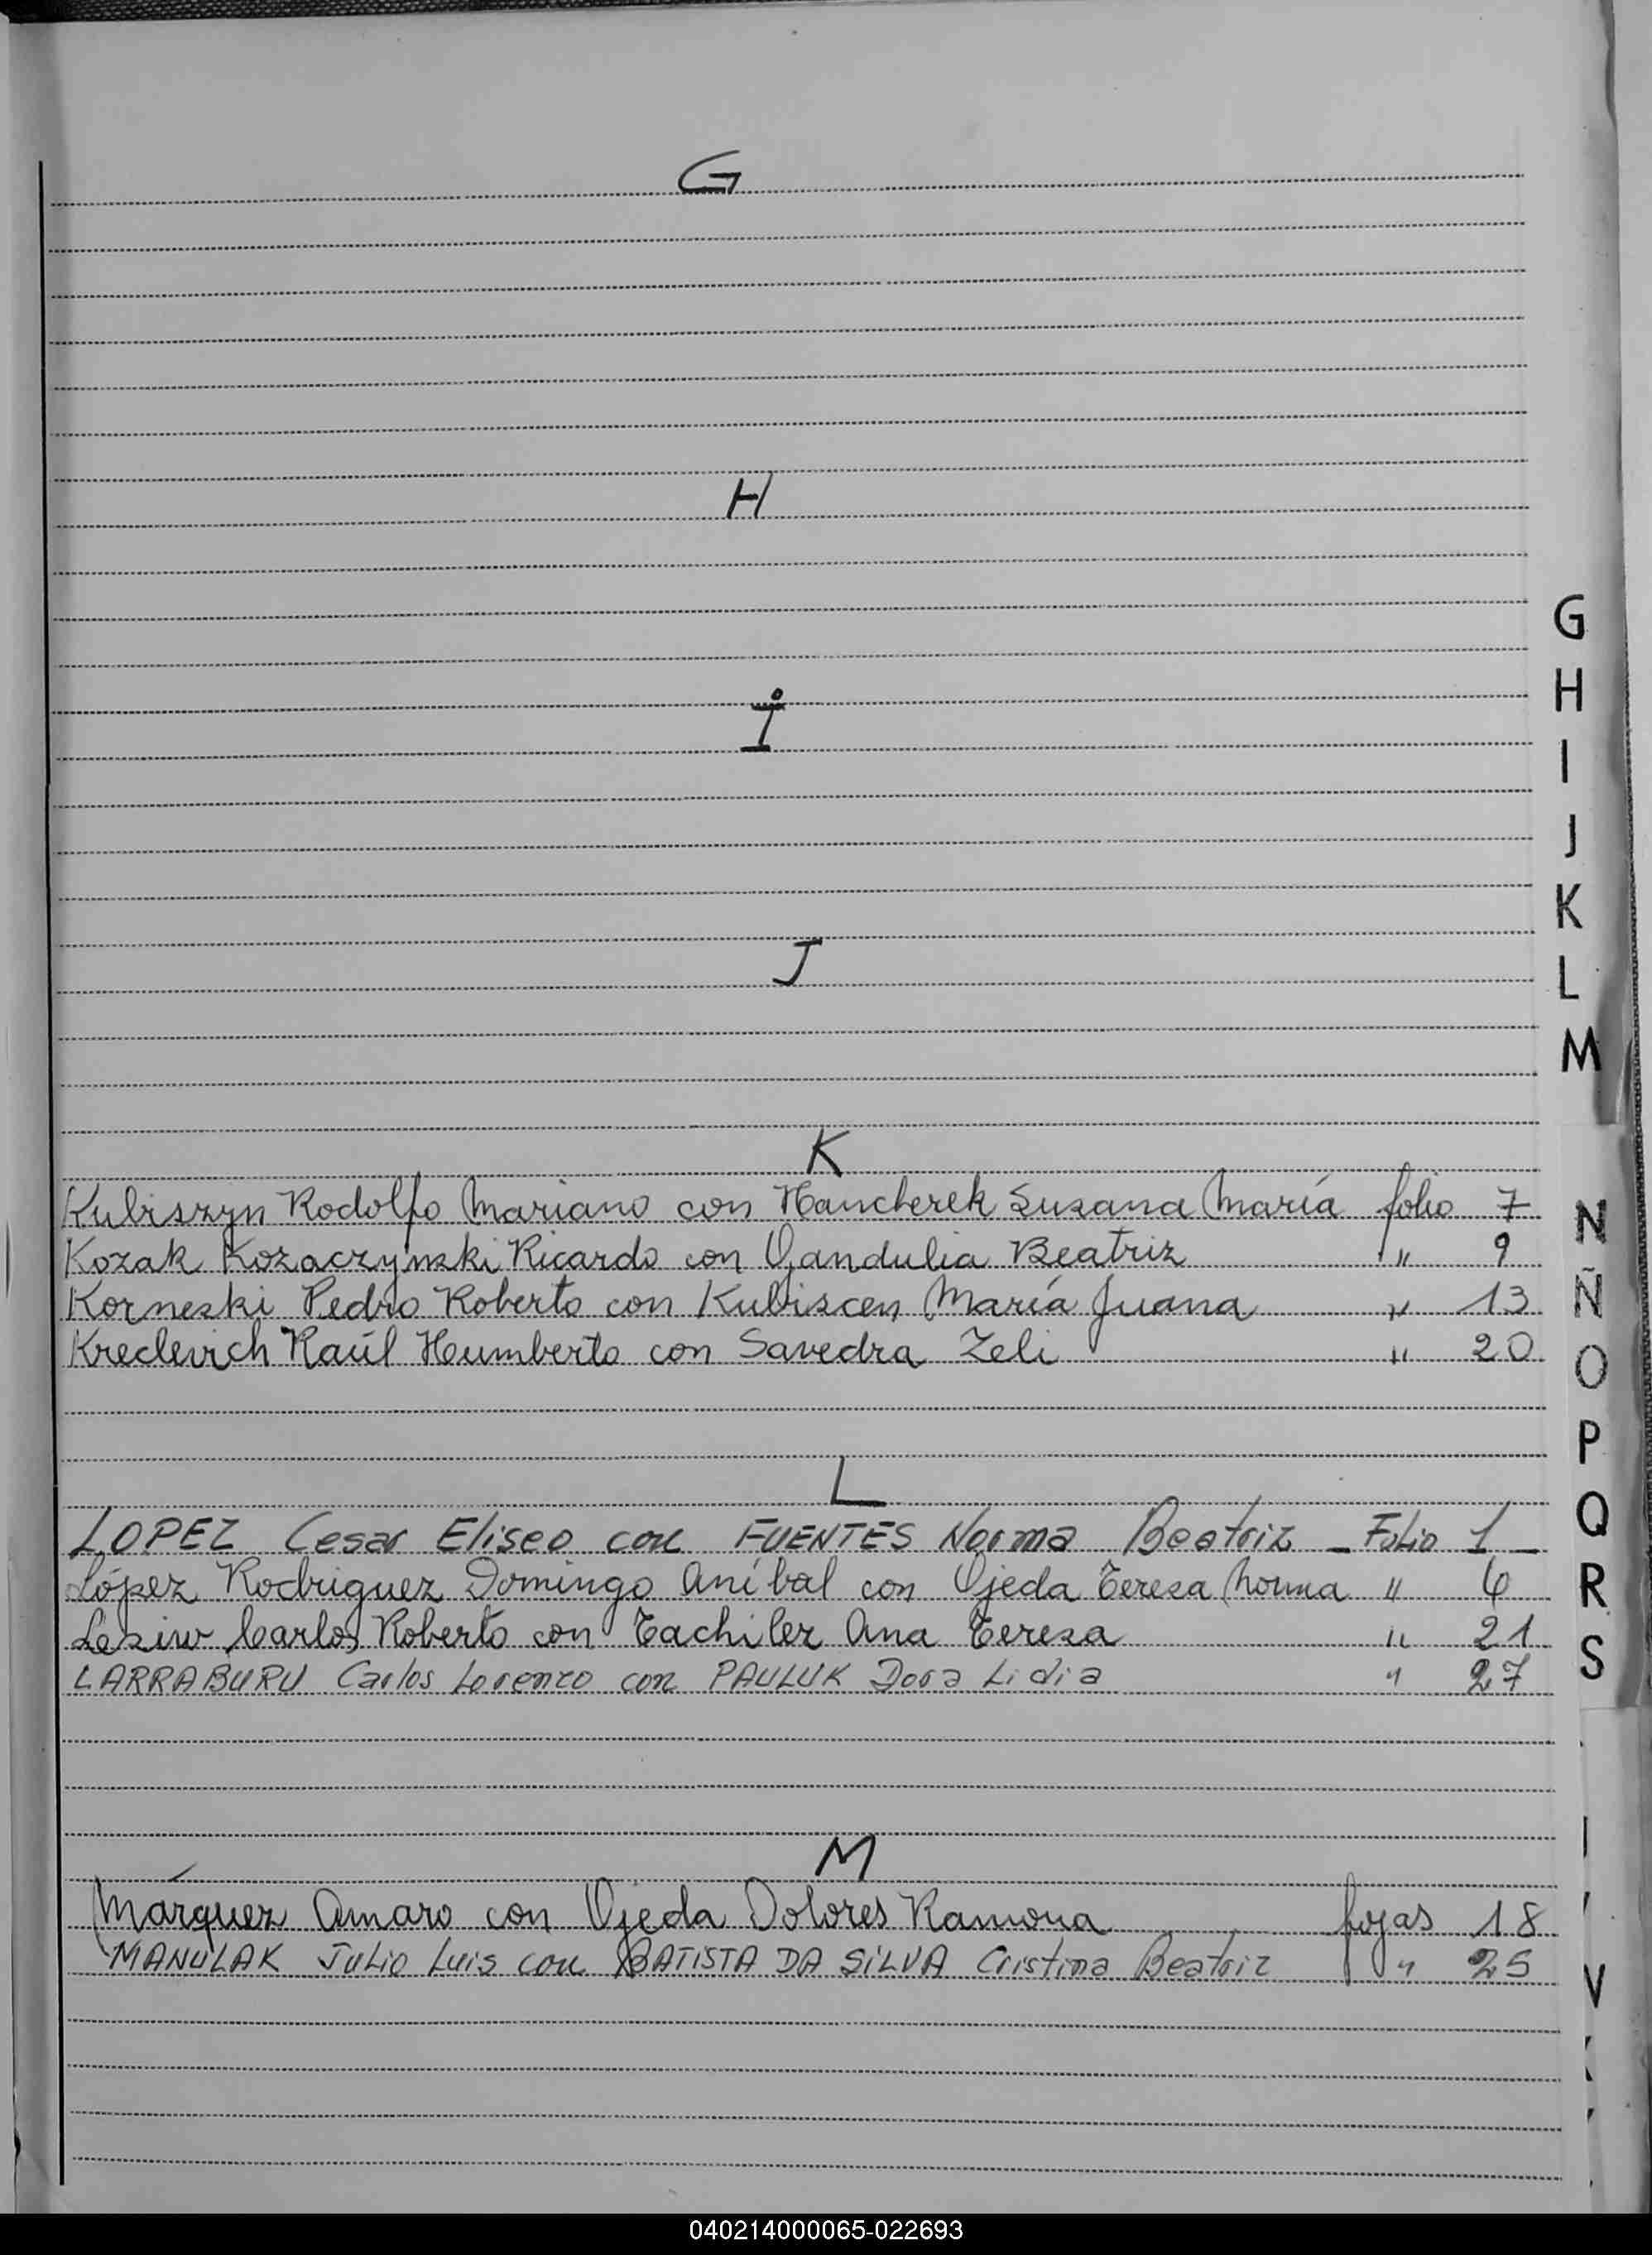 G
H
I
J
K
Kubiszyn Rodolfo Mariano con Hancherek Susana María folio 7
Kozak Kozaczynski Ricardo con Gandulia Beatriz " 9
Korneski Pedro Roberto con Kubiscen María Juana " 13
Kreclevich Raúl Humberto con Savedra Zeli " 20
L
LOPEZ Cesar Eliseo con FUENTES Norma Beatriz - Folio 1 -
López Rodriguez Domingo Aníbal con Ojeda Teresa Norma " 6
Lesiw Carlos Roberto con Tachiler Ana Teresa " 21
LARRABURU Carlos Lorenzo con PAULUK Dora Lidia " 27
M
Márquez Amaro con Ojeda Dolores Ramona fojas 18
MANULAK Julio Luis con BATISTA DA SILVA Cristina Beatriz " 25
G
H
I
J
K
L
M
N
Ñ
O
P
Q
R
S
V
040214000065-022693